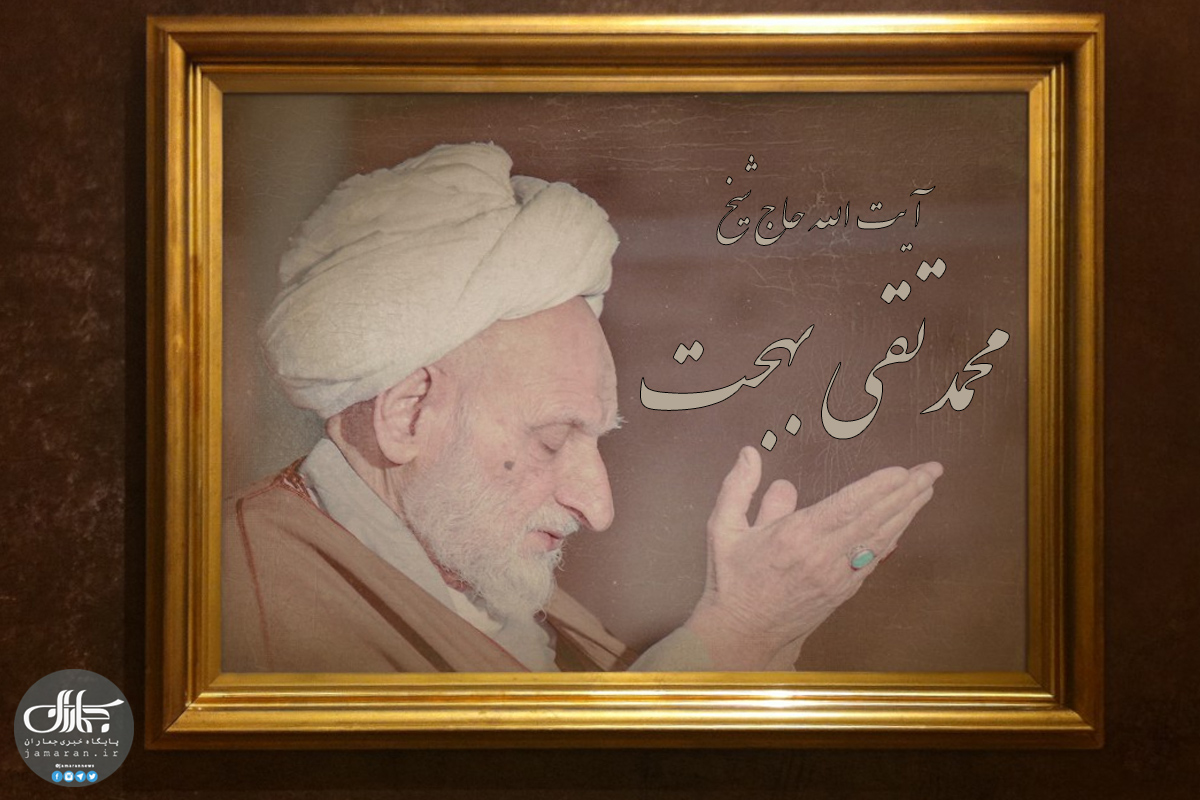 آیت الله حاج شیخ
محمد تقی بهجت
جماران
پایگاه خبری جماران
jamaran.ir
@jamarannews